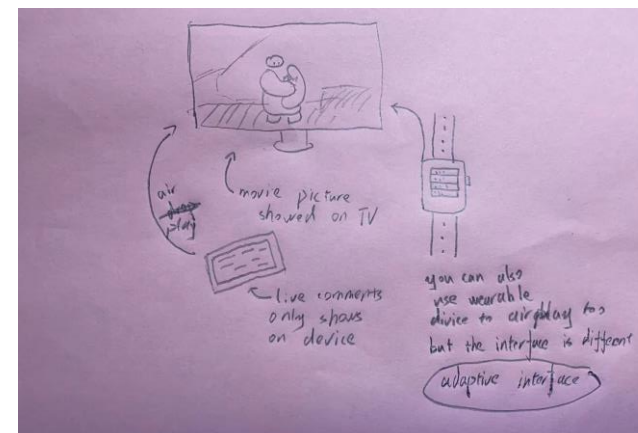 air
play
movie picture
showed on TV
live comments
only shows
on device
you can also
use wearable
divice to airplay too
but the interface is different
adaptive interface